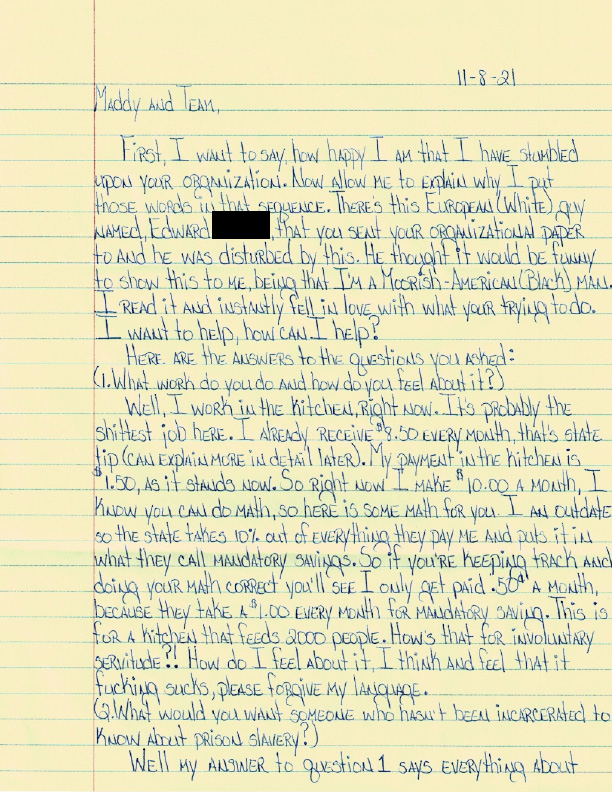 11-8-21
Maddy and Team,
First, I want to say, how happy I am that I have stumbled
upon your organization. Now allow me to explain why I put
those words in that sequence. Theres this European (White) guy
named, Edward , that you sent your organizational paper
to and he was disturbed by this. He thought it would be funny
to show this to me, being that I'm a Moorish-American (Black) man.
I read it and instantly fell in love with what your trying to do.
I want to help, how can I help?
Here are the answers to the questions you asked:
(1. What work do you do and how do you feel about it?)
Well, I work in the kitchen, right now. It's probably the
shittest job here. I already receive $8.50 every month, that's state
tip (can explain more in detail later). My payment in the kitchen is
$1.50, as it stands now. So right now I make $10.00 a month, I
know you can do math, so here is some math for you. I an outdate
so the state takes 10% out of everything they pay me and puts it in
what they call mandatory savings. So if you're keeping track and
doing your math correct you'll see I only get paid .50¢ a month,
because they take a $1.00 every month for mandatory saving. This is
for a kitchen that feeds 2000 people. How's that for involuntary
servitude?! How do I feel about it, I think and feel that it
fucking sucks, please forgive my language.
(2. What would you want someone who hasn't been incarcerated to
know about prison slavery?)
Well my answer to question 1 says everything about